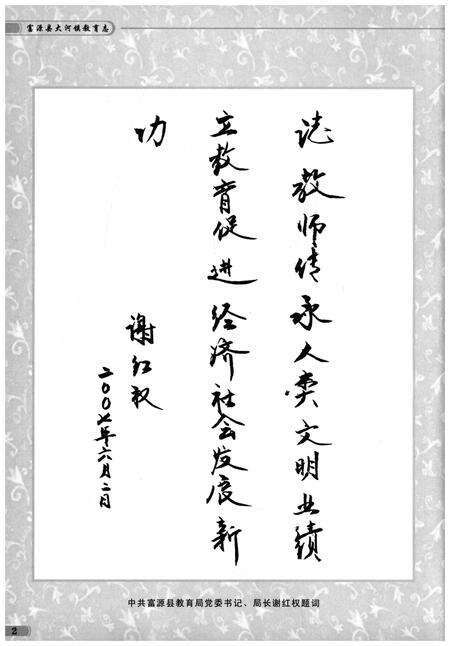 富源县大河镇教育志
誌教师情承人类文明业绩
立教育促进经济社会发展新
功
谢红权
二〇〇七年六月二日
中共富源县教育局党委书记、局长谢红权题词
2